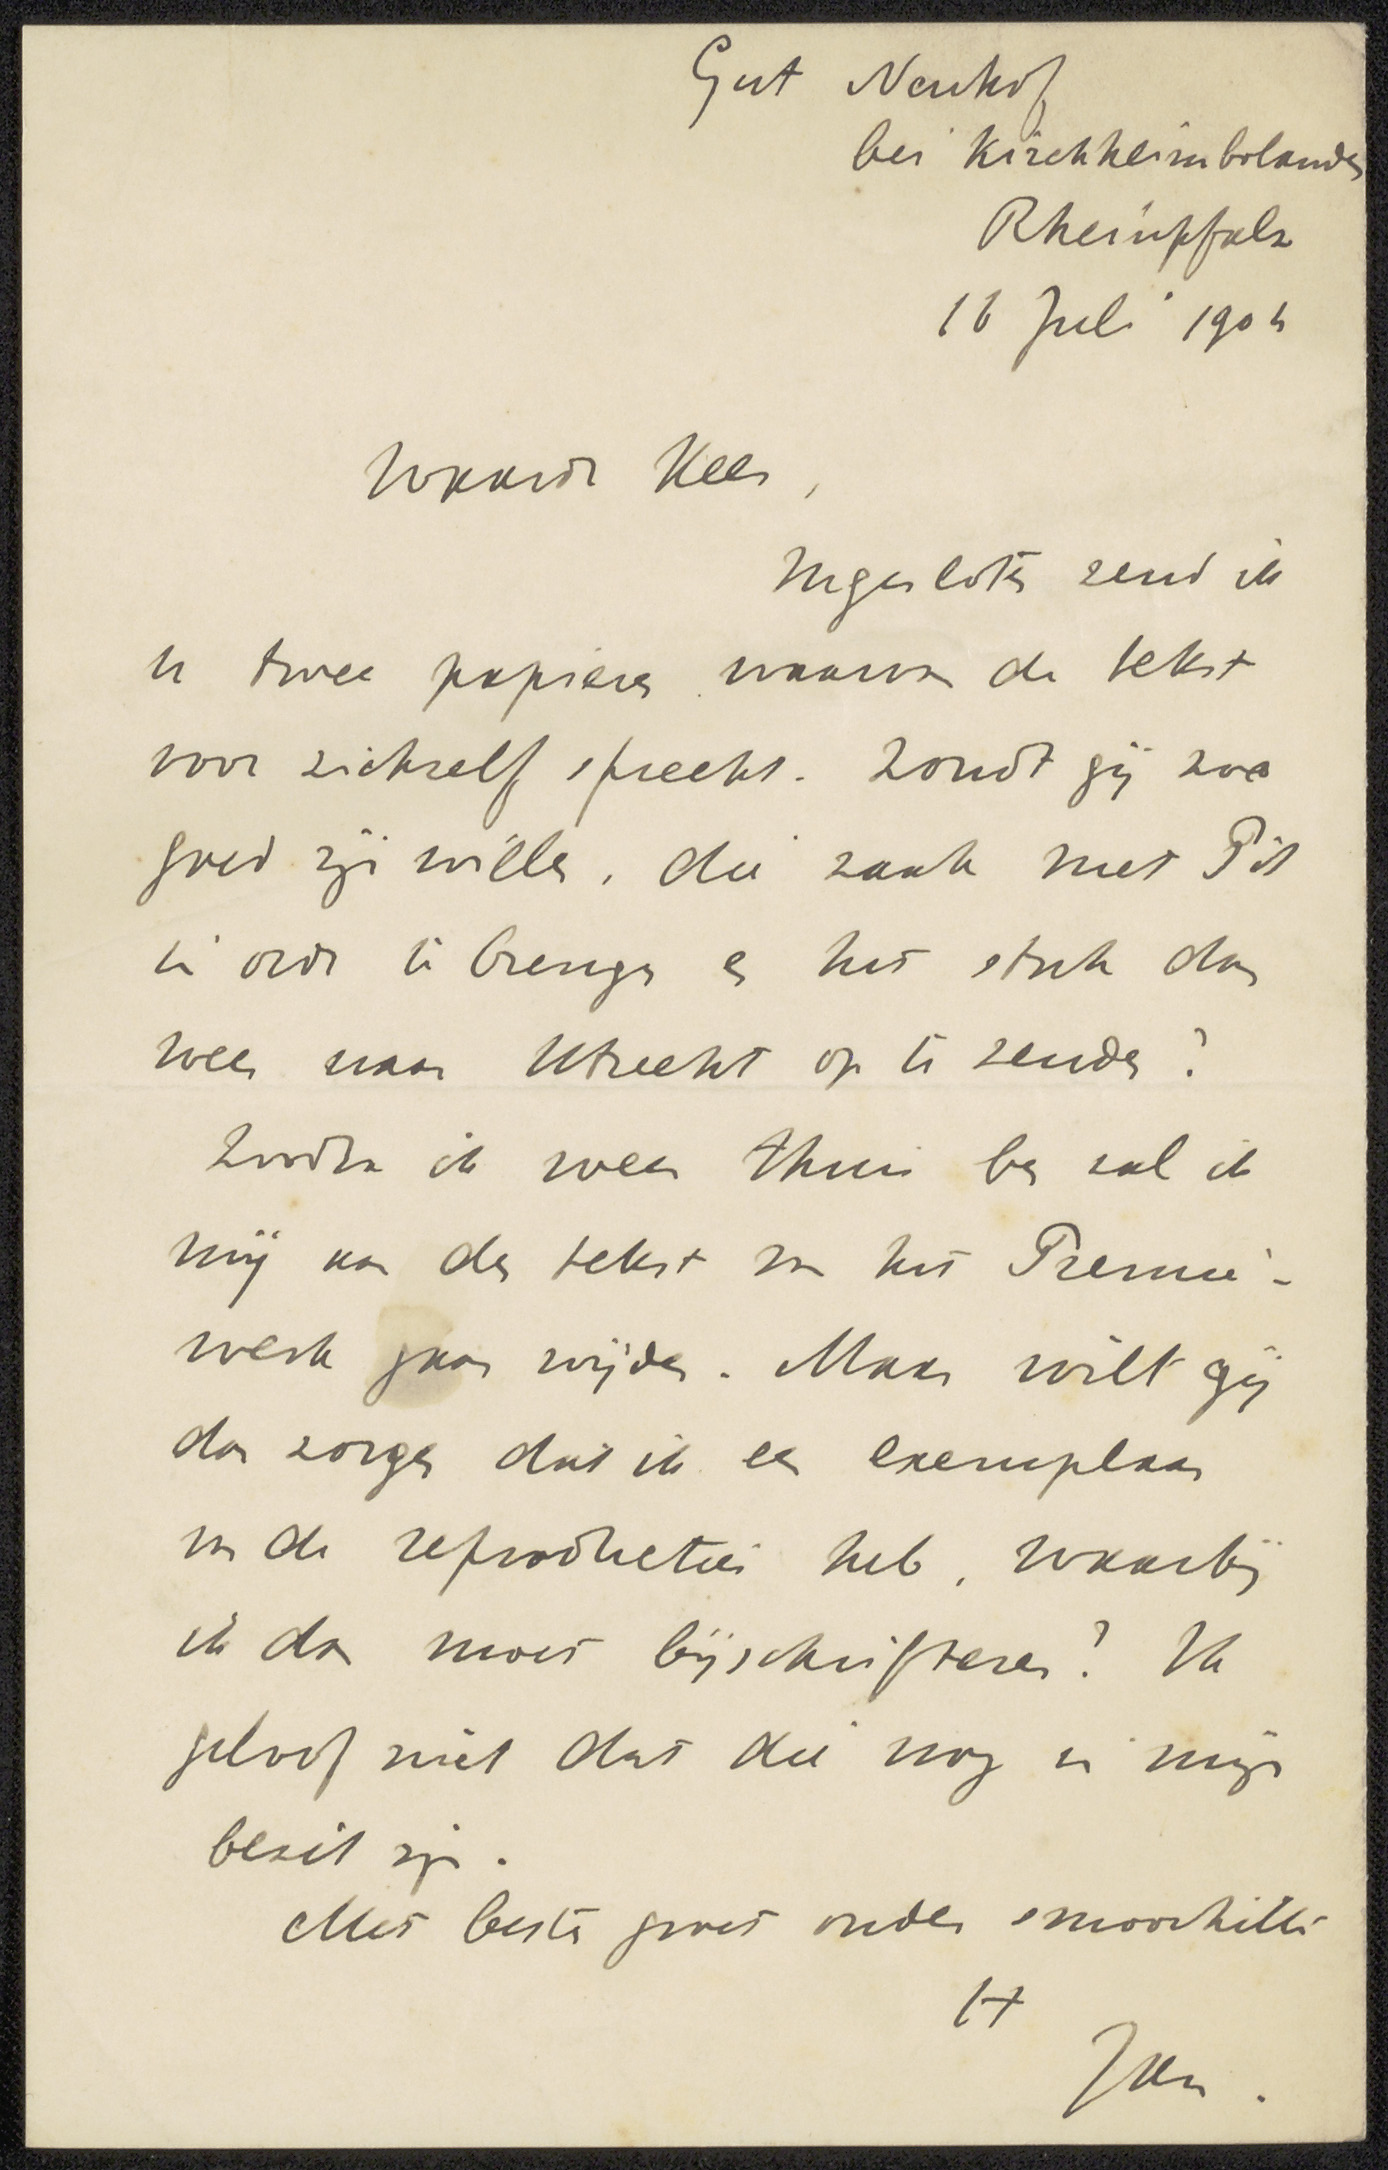 Gut Neuhof
bei Kirchheimbolanden
Rheinpfalz
16 Juli 1904
Waarde Kees,
Ingesloten zend ik
U twee papieren waarvan de tekst
voor zichzelf spreekt. Zoudt gij zoo
goed zijn willen, die zaak met Pit
in orde te brengen en het stuk dan
weer naar Utrecht op te zenden?
Zoodra ik weer thuis ben zal ik
mij aan den tekst van het Premie-
werk gaan wijden. Maar wilt gij
dan zorgen dat ik een exemplaar
van de reproducties heb, waarbij
ik dan moet bijschrifteren? Ik
geloof niet dat die nog in mijn
bezit zijn.
Met beste groet onder smoorhitte
Jan.